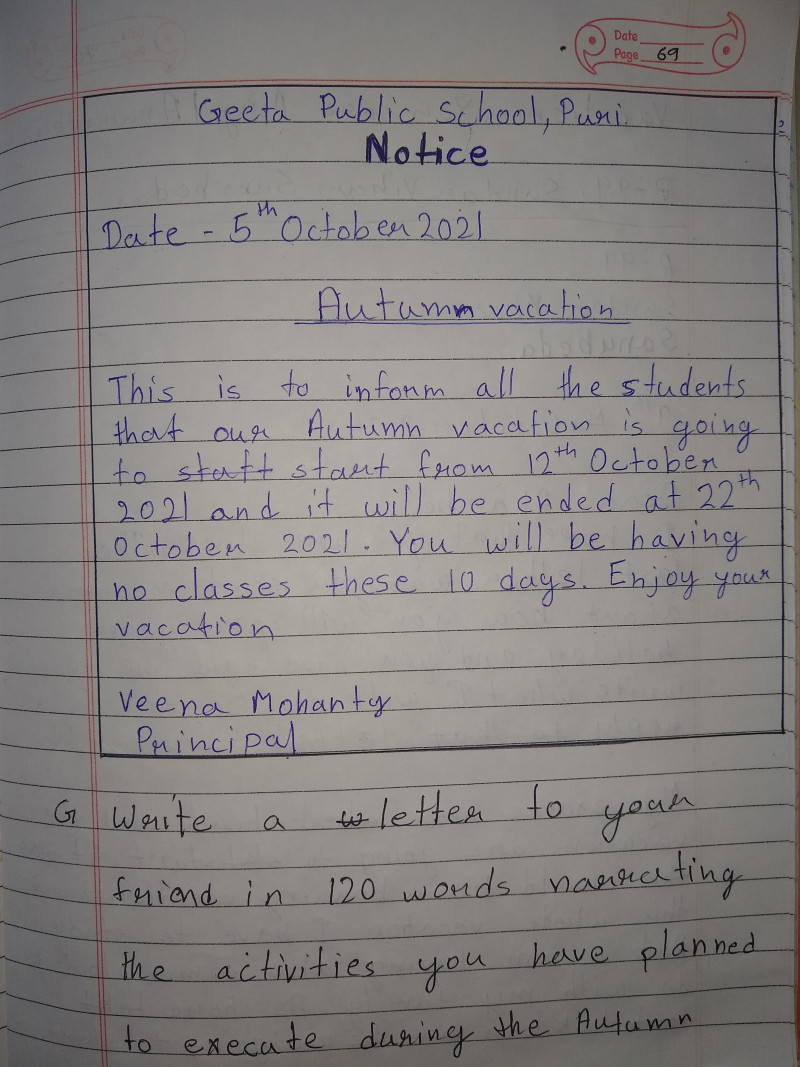 Date
Page 69
Geeta Public School, Puri
Notice
Date - 5th October 2021
Autumn vacation
This is to inform all the students
that our Autumn vacation is going
to staft start from 12th October
2021 and it will be ended at 22th
October 2021. You will be having
no classes these 10 days. Enjoy your
vacation
Veena Mohanty
Principal
G Write a w letter to your
friend in 120 words narrating
the activities you have planned
to execute during the Autumn